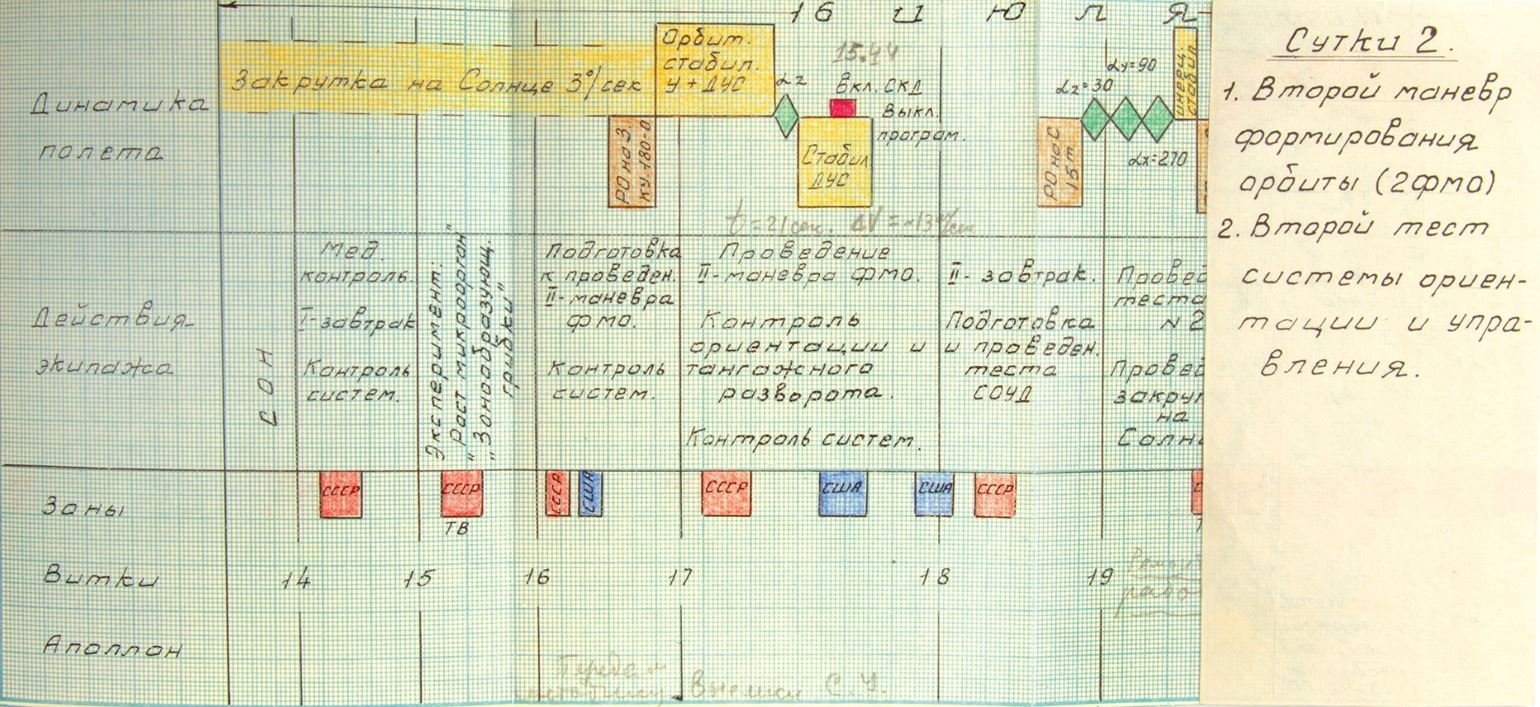 16 ИЮЛЯ
Динамика
полета
Закрутка на Солнце 3°/сек
Орбит.
стабил.
У + ДУС
РО на З.
ку.180-0
αz
15.44
Вкл. СКД
Выкл.
програм.
Стабил
ДУС
t = 21 сек. ΔV = ~13 м/сек
РО на С
15 m.
αz=30
αy=90
αx=270
инерц.
стабил.
Действия
экипажа
СОН
Мед.
контроль.
I-завтрак
Контроль
систем.
Эксперимент.
"Рост микроорган"
"Зонообразующ.
грибки"
Подготовка
к проведен.
II-маневра
ФМО.
Контроль
систем.
Проведение
II-маневра ФМО.
Контроль
ориентации и
тангажного
разворота.
Контроль систем.
II-завтрак.
Подготовка
и проведен.
теста
СОУД
Провед
теста
N 2
Провед
закрут
на
Солн
Зоны
СССР
СССР
ТВ
СССР
США
СССР
США
США
СССР
Витки
14 15 16 17 18 19
Аполлон
С.У.
Сутки 2.
1. Второй маневр
формирования
орбиты (2фмо)
2. Второй тест
системы ориен-
тации и упра-
вления.